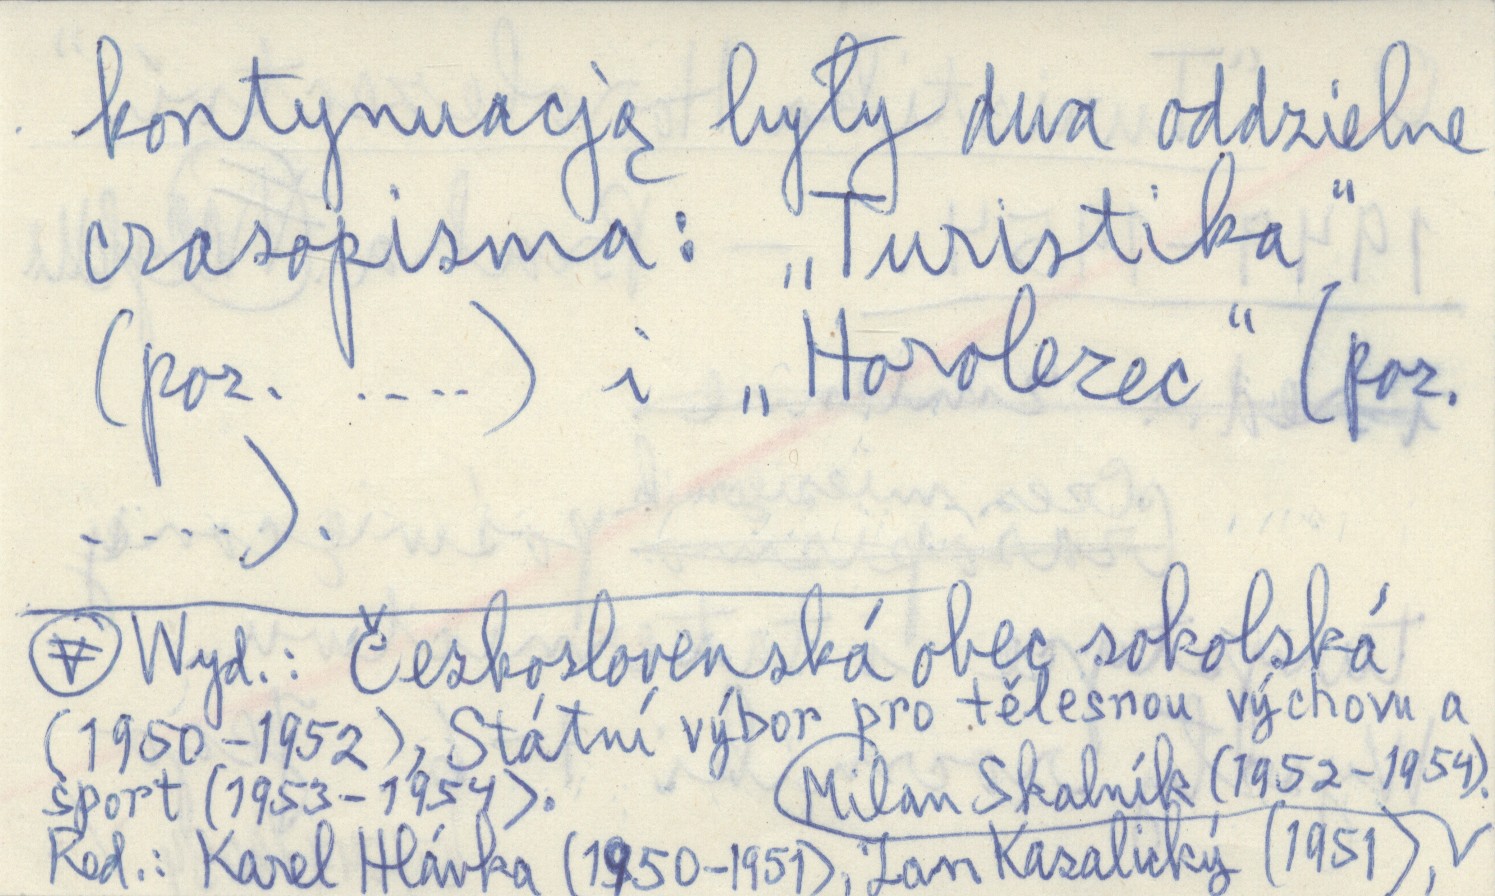 kontynuacją były dwa oddzielne
czasopisma: „Turistika“
(por. .....) i „Horolezec“ (por.
.....).
Wyd.: Československá obec sokolská
(1950-1952), Státní výbor pro tělesnou výchovu a
sport (1953-1954).
Milan Skalník (1952-1954).
Red.: Karel Hlávka (1950-1951), Jan Kazalický (1951),